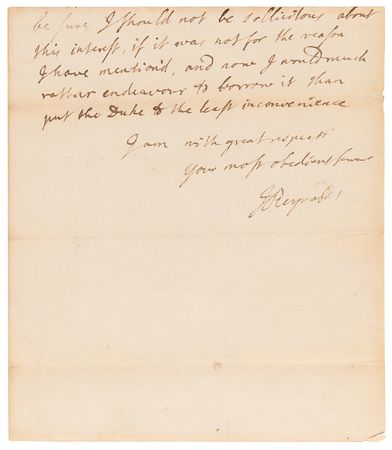 be sure, I should not be sollicitous about
this interest, if it was not for the reason
I have mention'd, and now I would much
rather endeavour to borrow it than
put the Duke to the least inconvenience
I am with great respect
Your most obedient servt
JReynolds